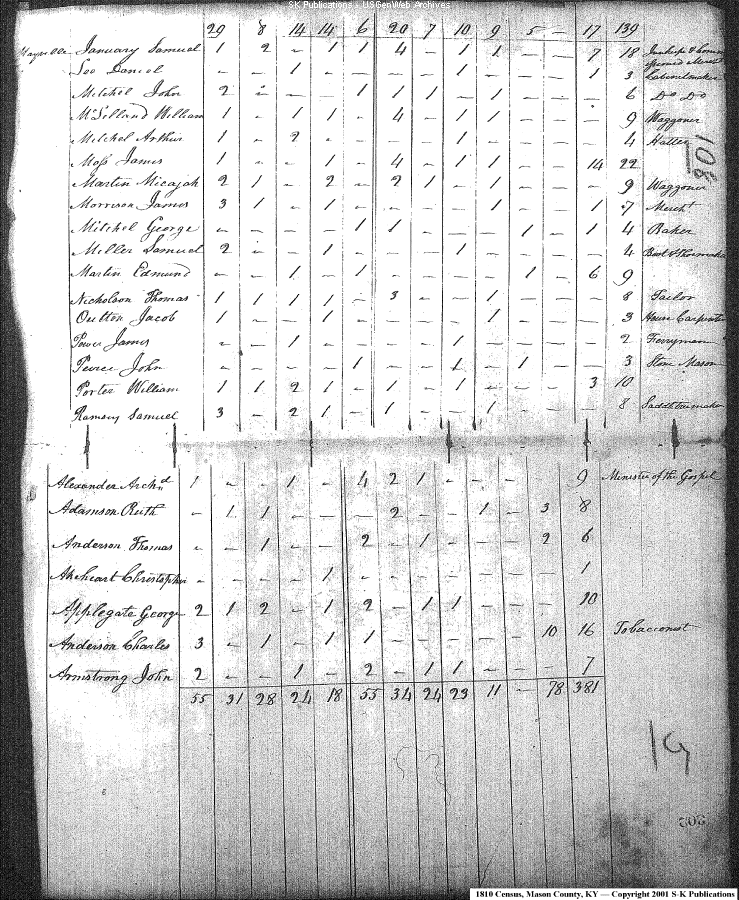 S-K Publications - USGenWeb Archives
29 8 14 14 6 20 7 10 9 5 — 17 139
Maysville January Samuel 1 2 - 1 1 4 - 1 1 7 18
Daniel - - 1 - - - - 1 - - - 1 3 Cabinetmaker
Mitchel John 2 - - - 1 1 1 - 1 - - - 6 Do Do
William 1 - 1 1 - 4 - 1 1 - - - 9 Waggoner
Mitchel Arthur 1 - 2 - - - - 1 - - - - 4 Hatter
Moss James 1 - - 1 - 4 - 1 1 14 22
Martin Micajah 2 1 - 2 - 2 1 - 1 - - - 9 Waggoner
Morrison James 3 1 - 1 - - - - 1 - - 1 7 Mercht
Mitchel George - - - - 1 1 - - - 1 - 1 4 Baker
Miller Samuel 2 - - 1 - - - 1 - - - - 4 Boot & Shoemaker
Martin Edmund - - 1 - 1 - - - - 1 - 6 9
Nicholson Thomas 1 1 1 1 - 3 - - 1 - - - 8 Tailor
Oulton Jacob 1 - - 1 - - - - 1 - - - 3 House Carpenter
Power James - - 1 - - - - 1 - - - - 2 Ferryman
Peirce John - - - - 1 - - 1 - 1 - - 3 Stone Mason
Porter William 1 1 2 1 - 1 - 1 - - - 3 10
Ramsey Samuel 3 - 2 1 - 1 - - 1 8
108
Alexander Archd 1 - - 1 - 4 2 1 - - - 9 Minister of the Gospel
Adamson Ruth - 1 1 - - - 2 - - 1 - 3 8
Anderson Thomas - - 1 - - 2 - 1 - - - 2 6
Christopher - - - - 1 - - - - - - - 1
Applegate George 2 1 2 - 1 2 - 1 1 - - - 10
Anderson Charles 3 - 1 - 1 1 - - - - - 10 16 Tobacconist
Armstrong John 2 - - 1 - 2 - 1 1 - - - 7
55 31 28 24 18 55 34 24 23 11 - 78 381
1810 Census, Mason County, KY — Copyright 2001 S-K Publications